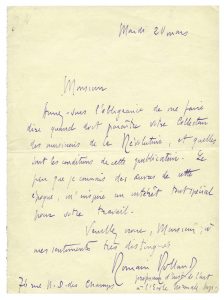 Mardi 20 mars
Monsieur
Auriez-vous l'obligeance de me faire
dire quand doit paraître votre Collection
des musiciens de la Révolution, et quelles
sont les conditions de cette publication. Le
peu que je connais des œuvres de cette
époque, m'inspire un intérêt tout spécial
pour votre travail.
Veuillez croire, Monsieur, à
mes sentiments très distingués
Romain Rolland
professeur d'hist. de l'art
à l'École normale sup.
76 rue N.D. des Champs